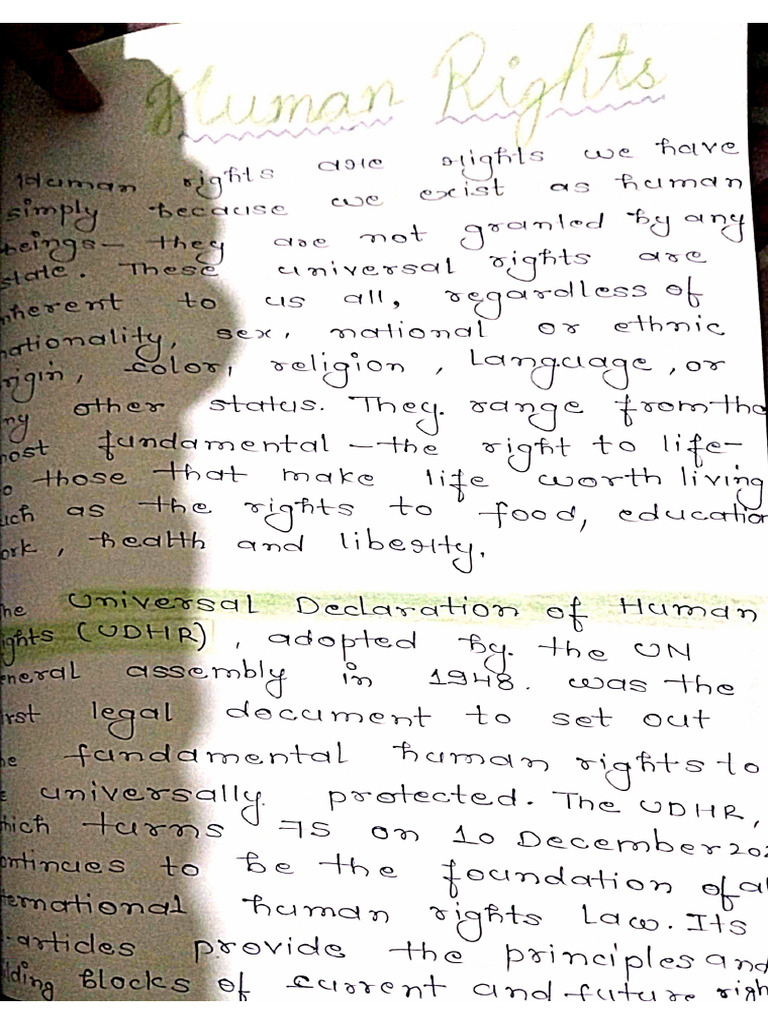 Human Rights
Human rights are rights we have
simply because we exist as human
beings- they are not granted by any
state. These universal rights are
nherent to us all, regardless of
nationality, sex, national or ethnic
rigin, color, religion, Language, or
ny other status. They. range from the
most fundamental - the right to life-
o those that make life worth living
uch as the rights to food, education
ork, health and liberty.
he Universal Declaration of Human
ights (UDHR), adopted by. the UN
eneral assembly in 1948. was the
irst legal document to set out
he fundamental human rights to
e universally. protected. The UDHR,
hich turns 75 on 10 December 202
ontinues to be the foundation of al
ternational human rights Law. Its
-articles provide the principles and
lding blocks of current and future righ